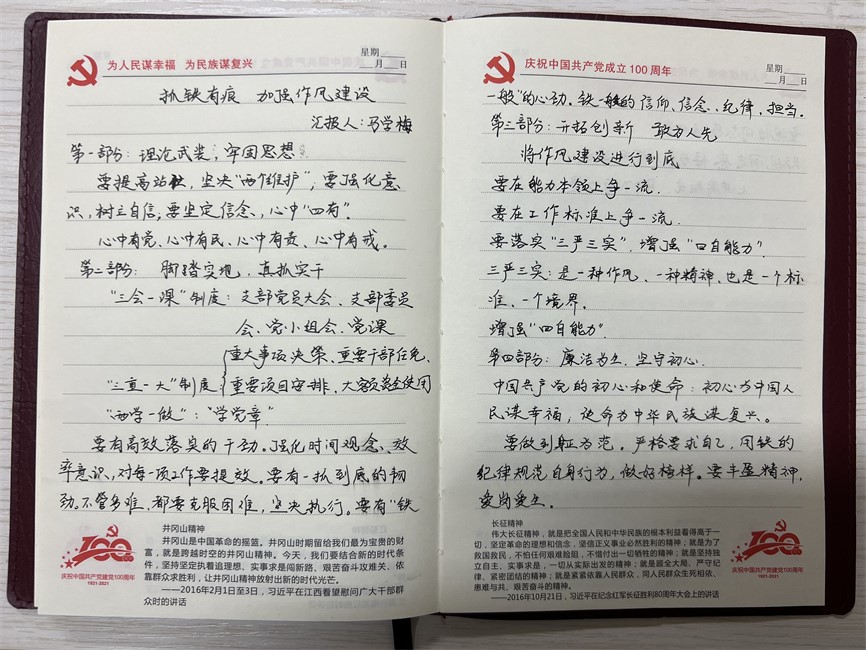 为人民谋幸福 为民族谋复兴
星期
月 日
抓铁有痕 加强作风建设
汇报人:马学梅
第一部分:理论武装,牢固思想
要提高站位,坚决“两个维护”,要强化意
识,树立自信;要坚定信念,心中“四有”.
心中有党、心中有民、心中有责、心中有戒。
第二部分: 脚踏实地,真抓实干
“三会一课”制度:支部党员大会、支部委员
会、党小组会、党课
重大事项决策、重要干部任免、
“三重一大”制度:重要项目安排,大额资金使用
“两学一做”:“学党章”
要有高效落实的干劲。强化时间观念、效
率意识,对每一项工作要提效。要有一抓到底的韧
劲.不管多难,都要克服困难,坚决执行。要有“铁
井冈山精神
井冈山是中国革命的摇篮。井冈山时期留给我们最为宝贵的财
富,就是跨越时空的井冈山精神。今天,我们要结合新的时代条
件,坚持坚定执着追理想、实事求是闯新路、艰苦奋斗攻难关、依
靠群众求胜利,让井冈山精神放射出新的时代光芒。
——2016年2月1日至3日,习近平在江西看望慰问广大干部群
众时的讲话
100
庆祝中国共产党建党100周年
1921-2021
庆祝中国共产党成立100周年
星期
月 日
一般”的心劲.铁一般的信仰、信念、纪律、担当.
第三部分:开拓创新 敢为人先
将作风建设进行到底
要在能力本领上争一流.
要在工作标准上争一流.
要落实“三严三实”,增强“四自能力”.
三严三实:是一种作风、一种精神、也是一个标
准、一个境界.
增强“四自能力”.
第四部分: 廉洁为主,坚守初心.
中国共产党的初心和使命:初心为中国人
民谋幸福,使命为中华民族谋复兴。
要做到身正为范。严格要求自己,用铁的
纪律规范自身行为,做好榜样。要丰盈精神,
爱岗爱生.
长征精神
伟大长征精神,就是把全国人民和中华民族的根本利益看得高于一
切,坚定革命的理想和信念,坚信正义事业必然胜利的精神;就是为了
救国救民,不怕任何艰难险阻,不惜付出一切牺牲的精神;就是坚持独
立自主、实事求是,一切从实际出发的精神;就是顾全大局、严守纪
律、紧密团结的精神;就是紧紧依靠人民群众,同人民群众生死相依、
患难与共、艰苦奋斗的精神。
——2016年10月21日,习近平在纪念红军长征胜利80周年大会上的讲话
100
庆祝中国共产党建党100周年
1921-2021